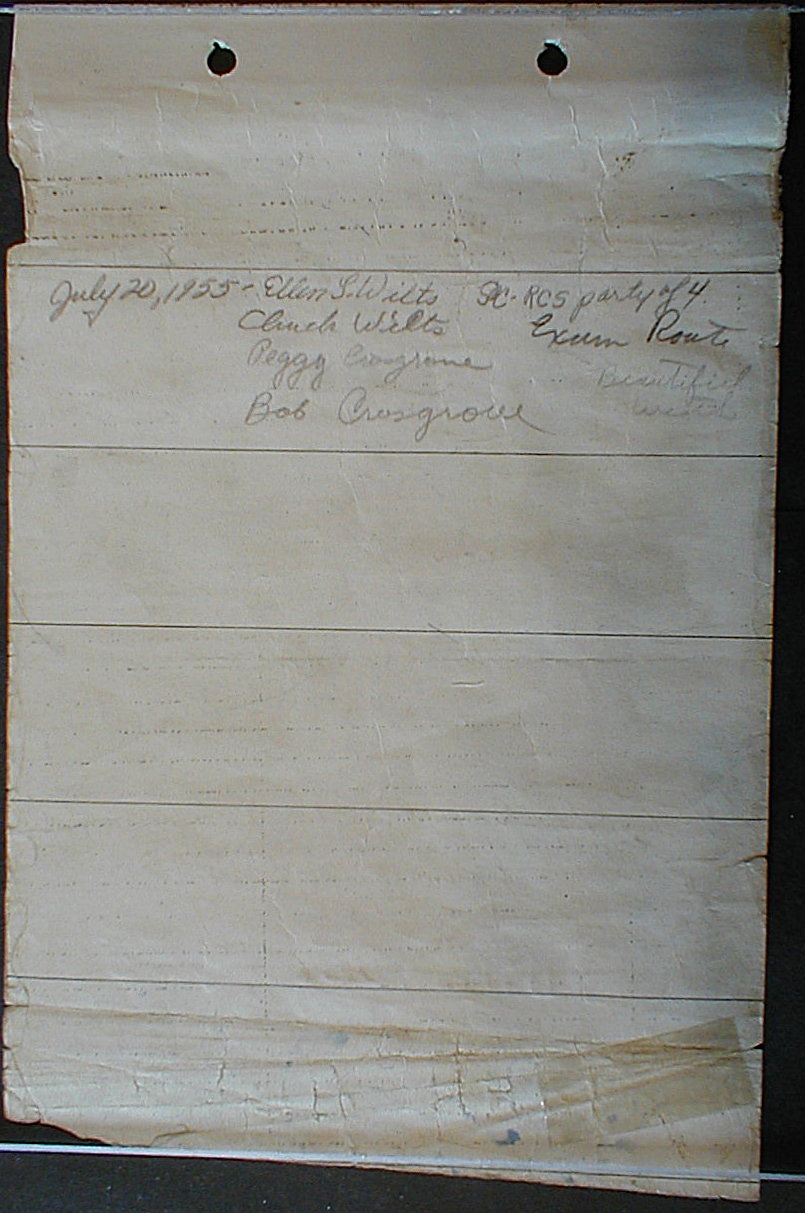 July 20, 1955 - Ellen S. Wilts SC-RCS party of 4
Chuck Wilts Exum Route
Peggy Cosgrove Beautiful
Bob Crosgrove